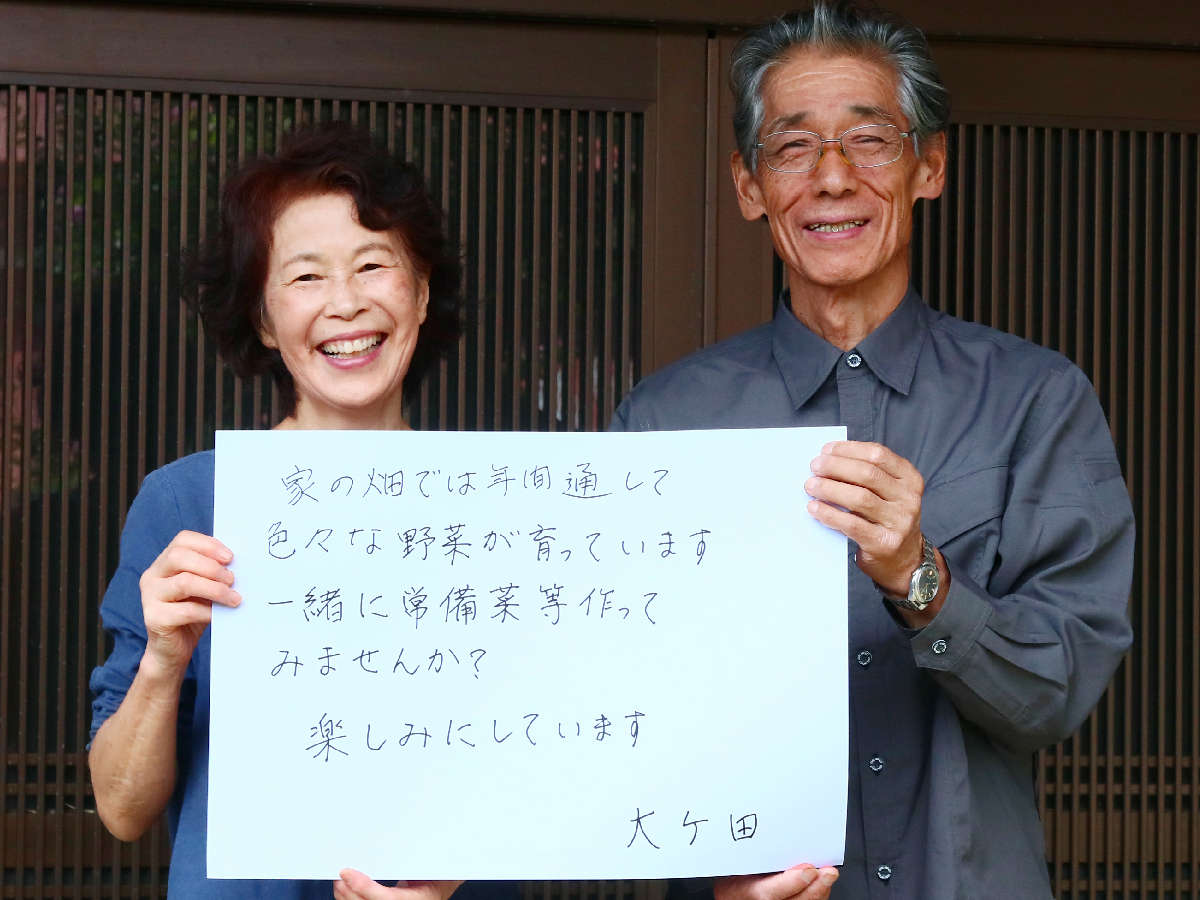 家の畑では年間通して
色々な野菜が育っています
一緒に常備菜等作って
みませんか?
楽しみにしています
大ケ田